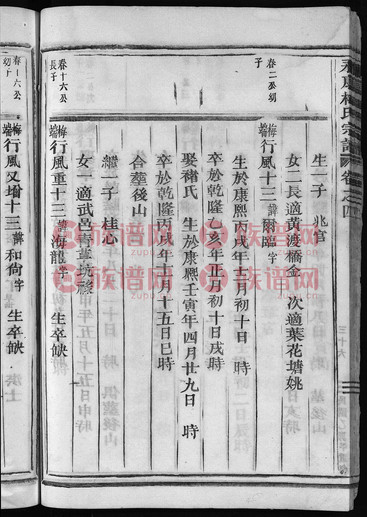 生一子 兆官
女二長適黃渡橋金 次適葉花塘姚
春二公幼子
梅端行風十三 諱爾臨 字
生於康熙丙戌年十月初十日 時
卒於乾隆乙亥年正月初十日戌時
娶褚氏 生於康熙壬寅年四月廿九日 時
卒於乾隆丙戌年十一月十五日巳時
合塟後山
繼一子 桂心
女一適武邑青
春十六公長子
梅端行風重十二 諱海龍 字 生卒缺
春十六公幼子
梅端行風又增十三 諱和尙 字 生卒缺
氏宗譜 卷之四
三十六
族谱网